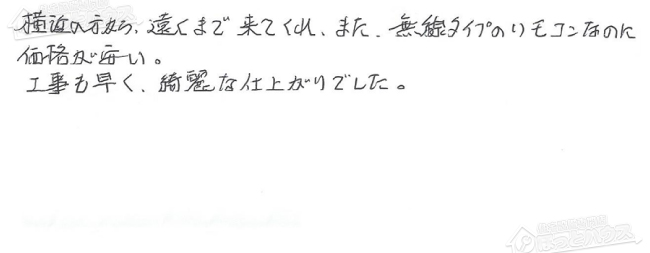 横浜の方から、遠くまで来てくれ、また、無線タイプのリモコンなのに
価格が安い。
工事も早く、綺麗な仕上がりでした。